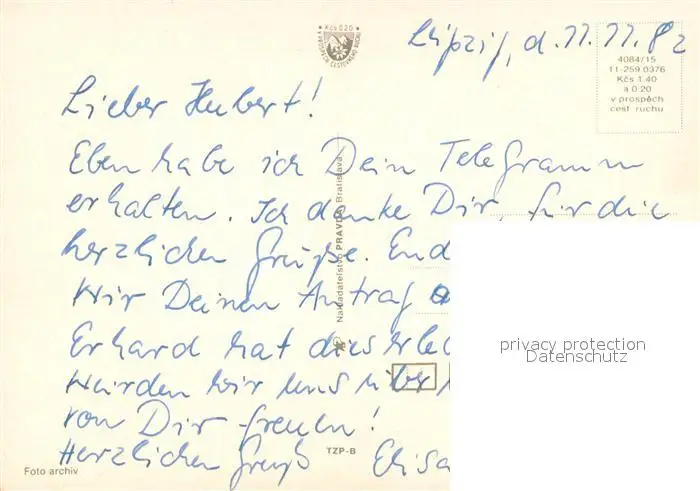 Leipzig, d. 11.11.82
Kčs 0.20
4084/15
11-259 0376
Kčs 1.40
a 0.20
v prospěch
cest ruchu
Lieber Hubert!
Eben habe ich Dein Telegramm
erhalten. Ich danke Dir für die
herzlichen Grüße. End
Wir Deinen Antrag
Erhard hat dies erled
Würden wir uns über
von Dir freuen!
Herzlichen Gruß Elisa
Nakladateľstvo PRAVDA Bratislava
TZP-B
Foto archiv
privacy protection
Datenschutz